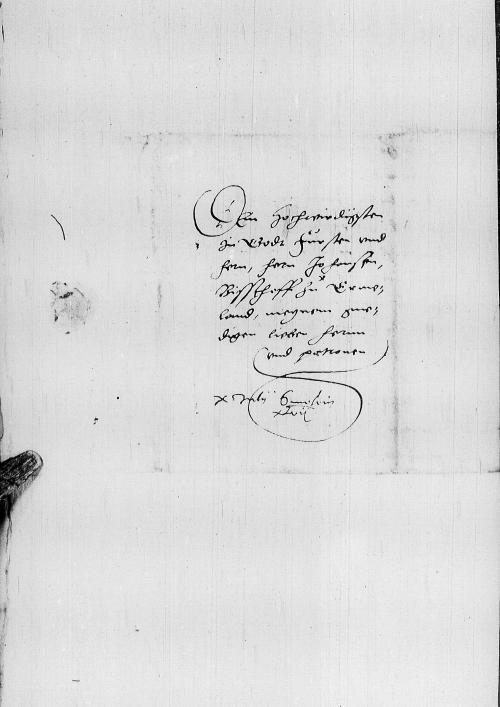 Dem Hochwirdigsten
In Godt Fürsten und
hern, hern Johansen,
Bisschoff zu Erme-
land, meynem gne-
digen lieben hernn
und patronen
x Julii